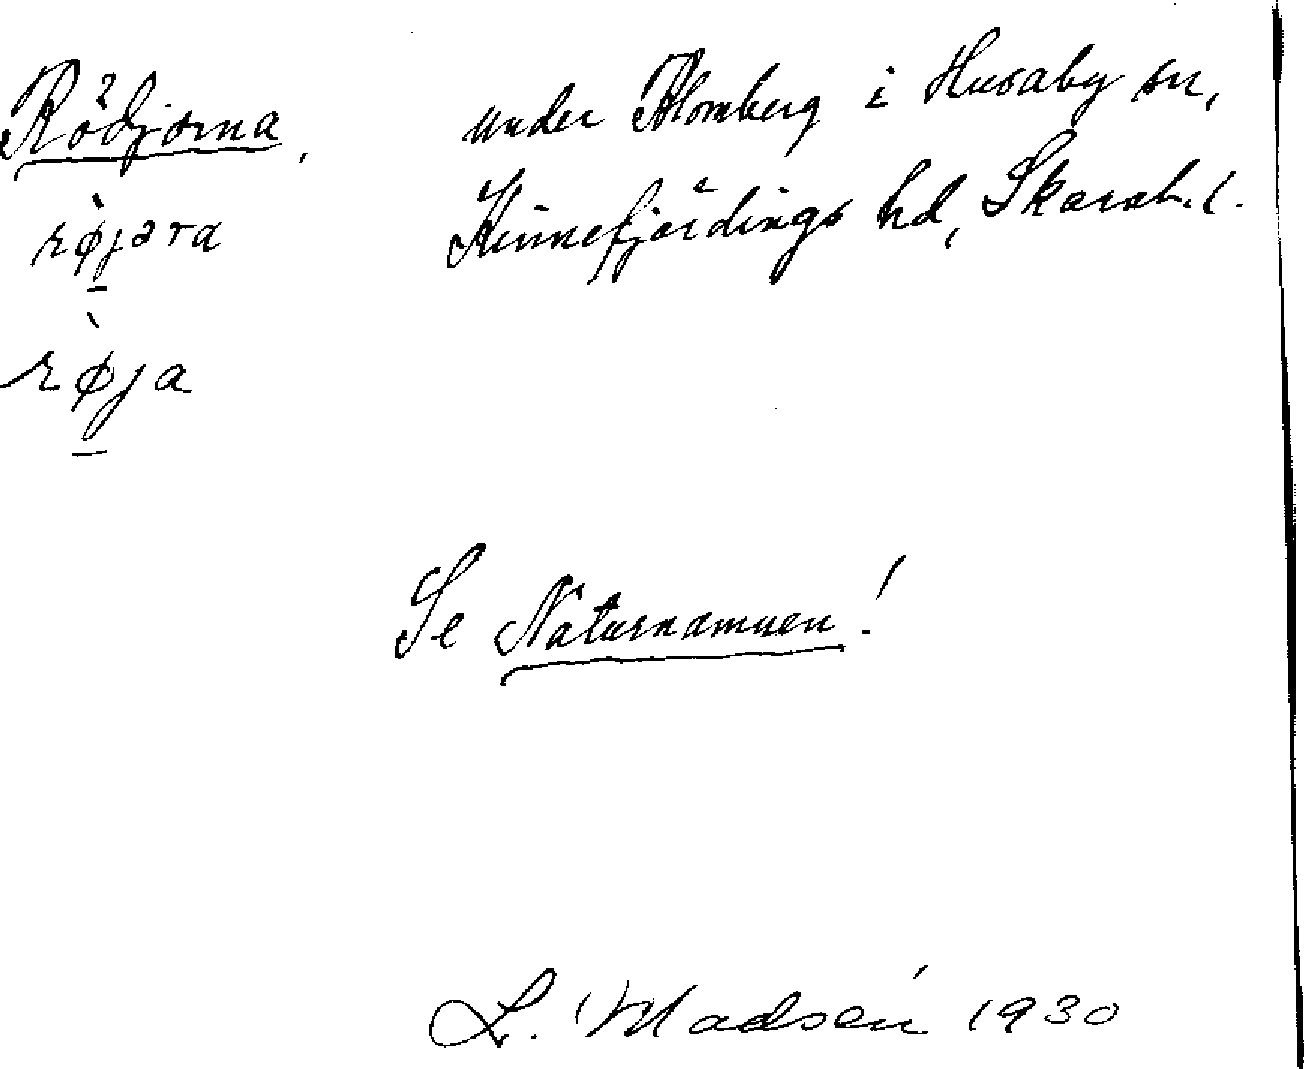 Rödjorna, under Blomberg i Husaby sn,
rø̀jǝra Kinnefjärdings hd, Skarab. l.
rø̀ja
Se Naturnamnen!
L. Madsén 1930